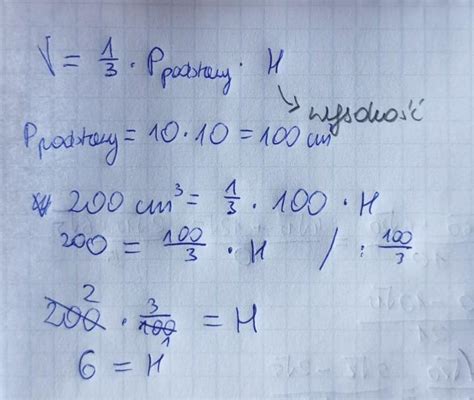 V = 1/3 · Ppodstawy · H
wysokość
Ppodstawy = 10 · 10 = 100 cm
200 cm³ = 1/3 · 100 · H
200 = 100/3 · H / : 100/3
2 3
200 · 3/100 = H
1
6 = H